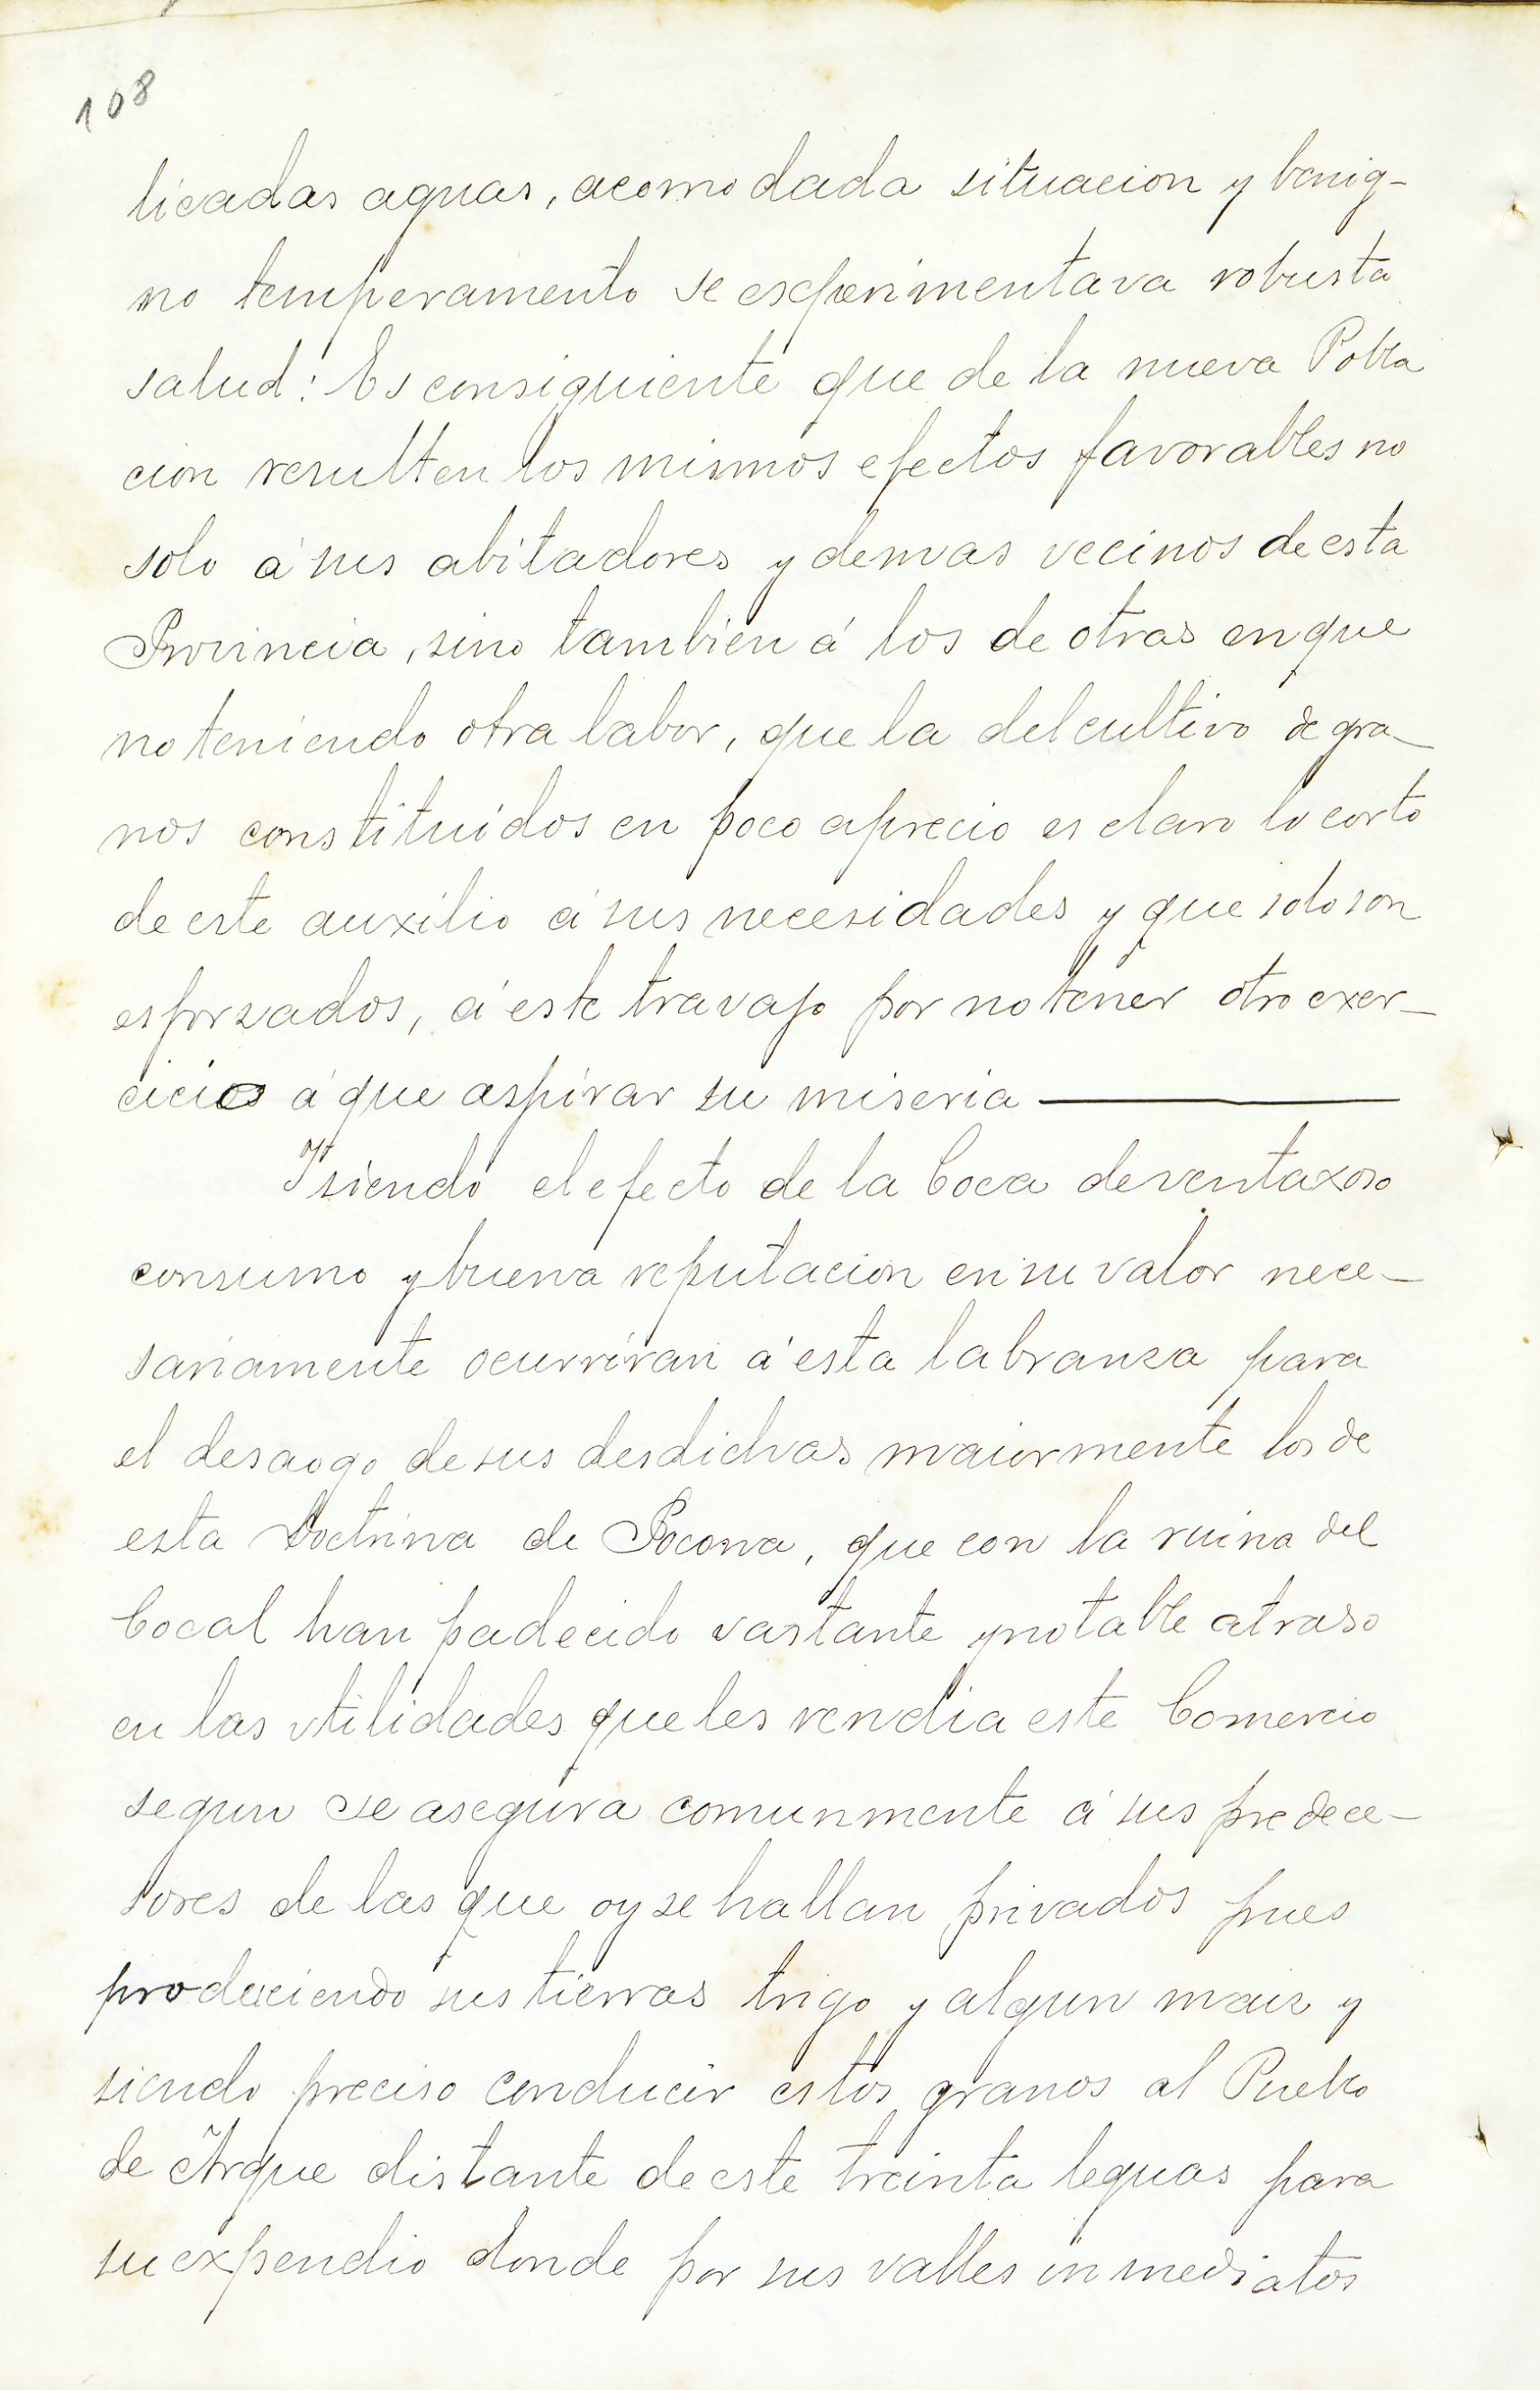 108
licadas aguas, acomodada situacion y benig-
no temperamento se esxperimentava robusta
salud: Es consiguiente que de la nueva Pobla
cion resulten los mismos efectos favorables no
solo á sus abitadores y demas vecinos de esta
Provincia, sino tambien á los de otras en que
no teniendo otra labor, que la del cultivo de gra-
nos constituidos en poco aprecio es claro lo corto
de este auxilio á sus necesidades y que solo son
esforzados, á este travajo por no tener otro exer-
cicios á que aspirar su miseria
Y siendo el efecto de la Coca de ventaxoso
consumo y buena reputacion en su valor nece-
sariamente ocurriran á esta labranza para
el desaogo de sus desdichas maiormente los de
esta Doctrina de Pocona, que con la ruina del
Cocal han padecido vastante y notable atraso
en las utilidades que les rendia este Comercio
segun se asegura comunmente á sus predece-
sores de las que oy se hallan privados pues
produciendo sus tierras trigo y algun maiz y
siendo preciso conducir estos granos al Pueblo
de Arque distante de este treinta leguas para
su expendio donde por sus valles inmediatos